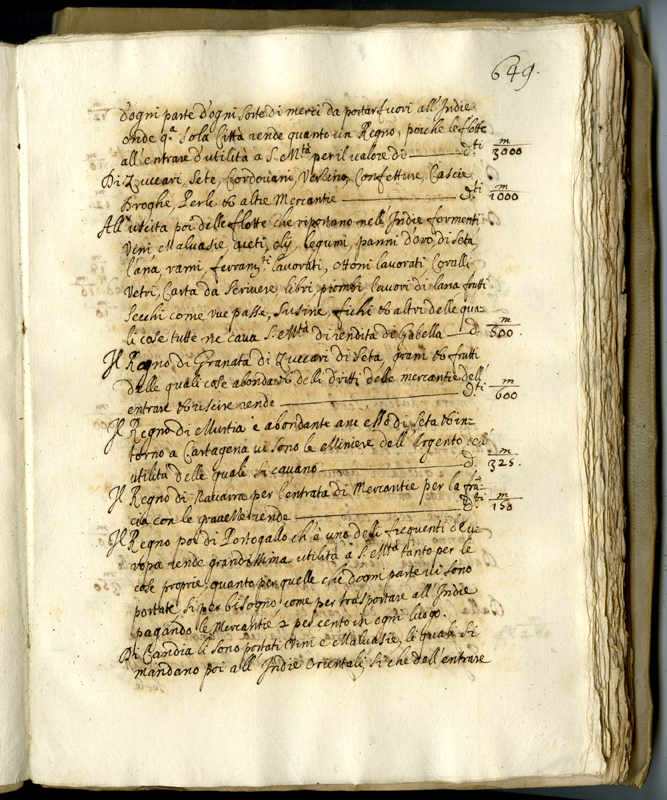 649.
d'ogni parte d'ogni sorte di merci da portar fuori all'Indie
onde q.ª sola Città rende quanto un Regno, poiche le flotte
all'entrare d'utilità a S. M.tà per il valore di — d.ti m/3000
Di Zuccari, Sete, Cordovani, Verzino, Confetture, Cascie
Droghe, Perle et altre Mercantie — d.ti m/1000
All'uscita poi delle flotte che riportano nell'Indie formenti
Vini Malvasie, aceti, olij legumi, panni d'oro, di seta
lana, rami, ferram.ti lavorati, ottoni lavorati, Coralli
Vetri, Carta da scrivere, libri piombi lavori di lana frutti
secchi come vue passe, susine, fichi et altri delle qua-
li cose tutte ne cava S. M.tà di rendita di Gabella — d. m/500
Il Regno di Granata di Zuccari di Seta grani et frutti
dalle quali cose abonda et delli dritti delle mercantie dell'
entrare et uscire rende — d.ti m/600
Il Regno di Murtia è abordante anc'esso di seta et in-
torno a Cartagena vi sono le Miniere dell'Argento dell'
utilità delle quali si cavano — d. m/325.
Il Regno di Navarra per l'entrata di Mercantie per la frã-
cia con le gravezze rende — d.ti m/150
Il Regno poi di Portogallo ch'è uno delli frequenti d'Eu-
ropa rende grandissima utilità a S. M.tà tanto per le
cose proprie, quanto per quelle che d'ogni parte ivi sono
portate sì per bisogno, come per trasportare all'Indie
pagando le Mercantie 2 per cento in ogni luogo.
Di Candia li sono portati Vini e Malvasie, li quali si
mandano poi all'Indie Orientali sì che dell'entrare